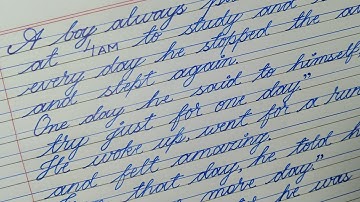 A boy always
at 4 AM to study and
every day he stopped the
and slept again.
One day he said to himself,
try just for one day."
He woke up, went for a run
and felt amazing.
that day, he told
more day."
he was